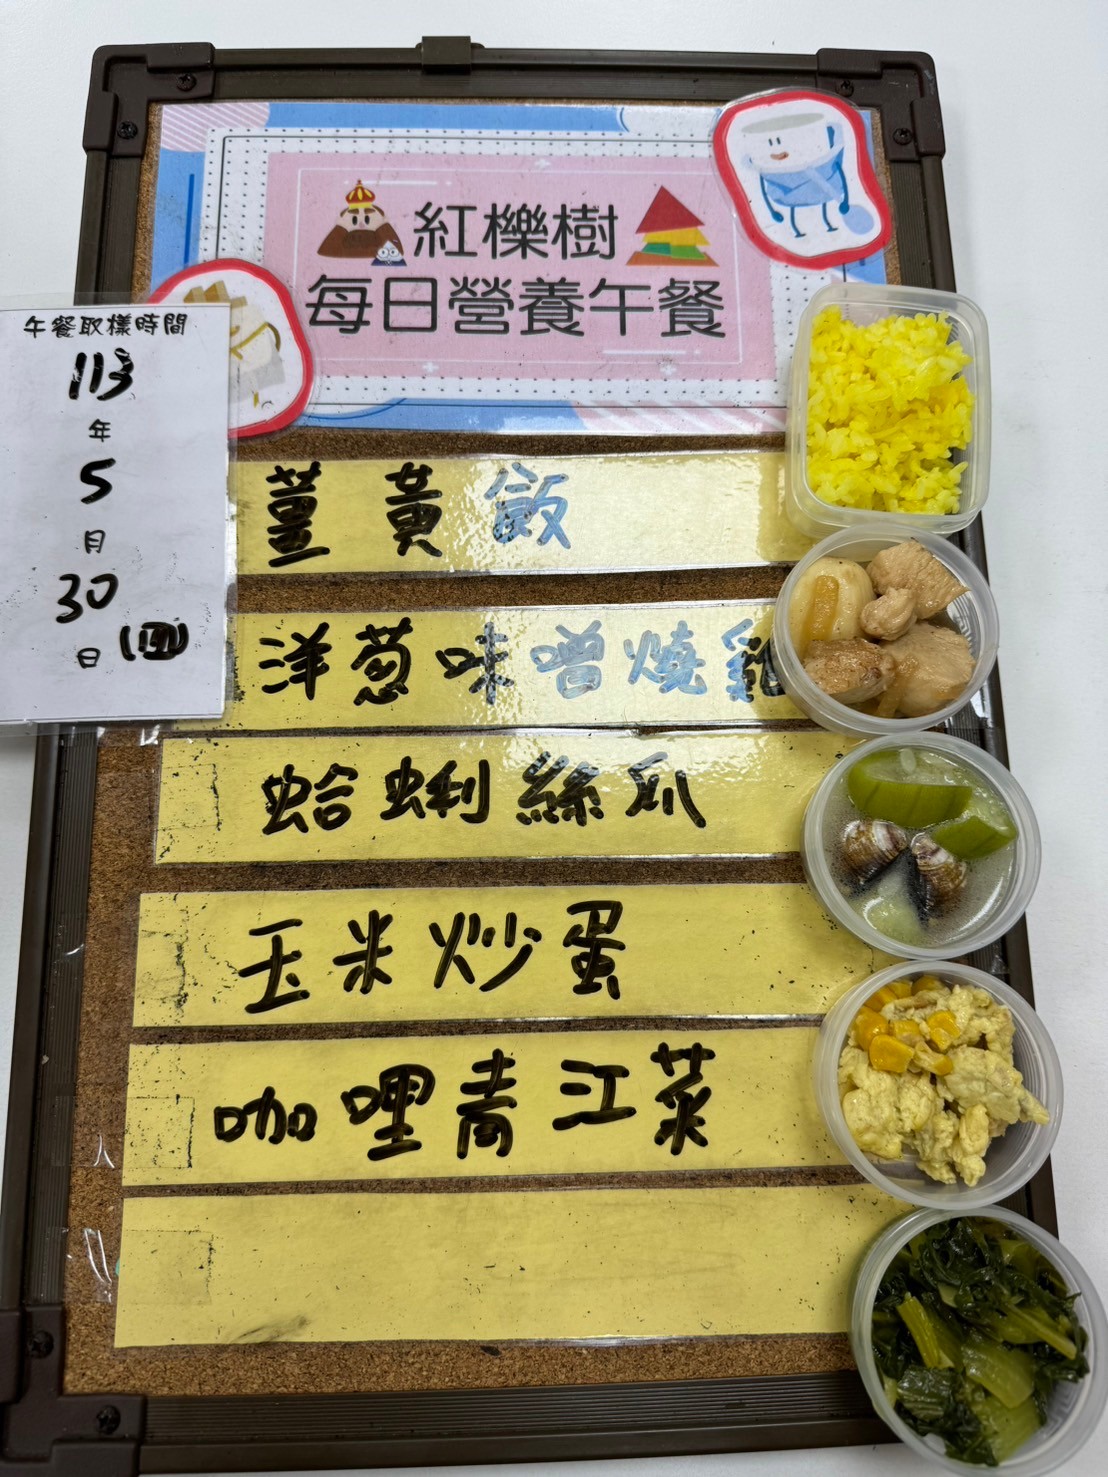 紅櫟樹
每日營養午餐
午餐取樣時間
113
年
5
月
30
日 (四)
薑黃飯
洋葱味噌燒雞
蛤蜊絲瓜
玉米炒蛋
咖哩青江菜